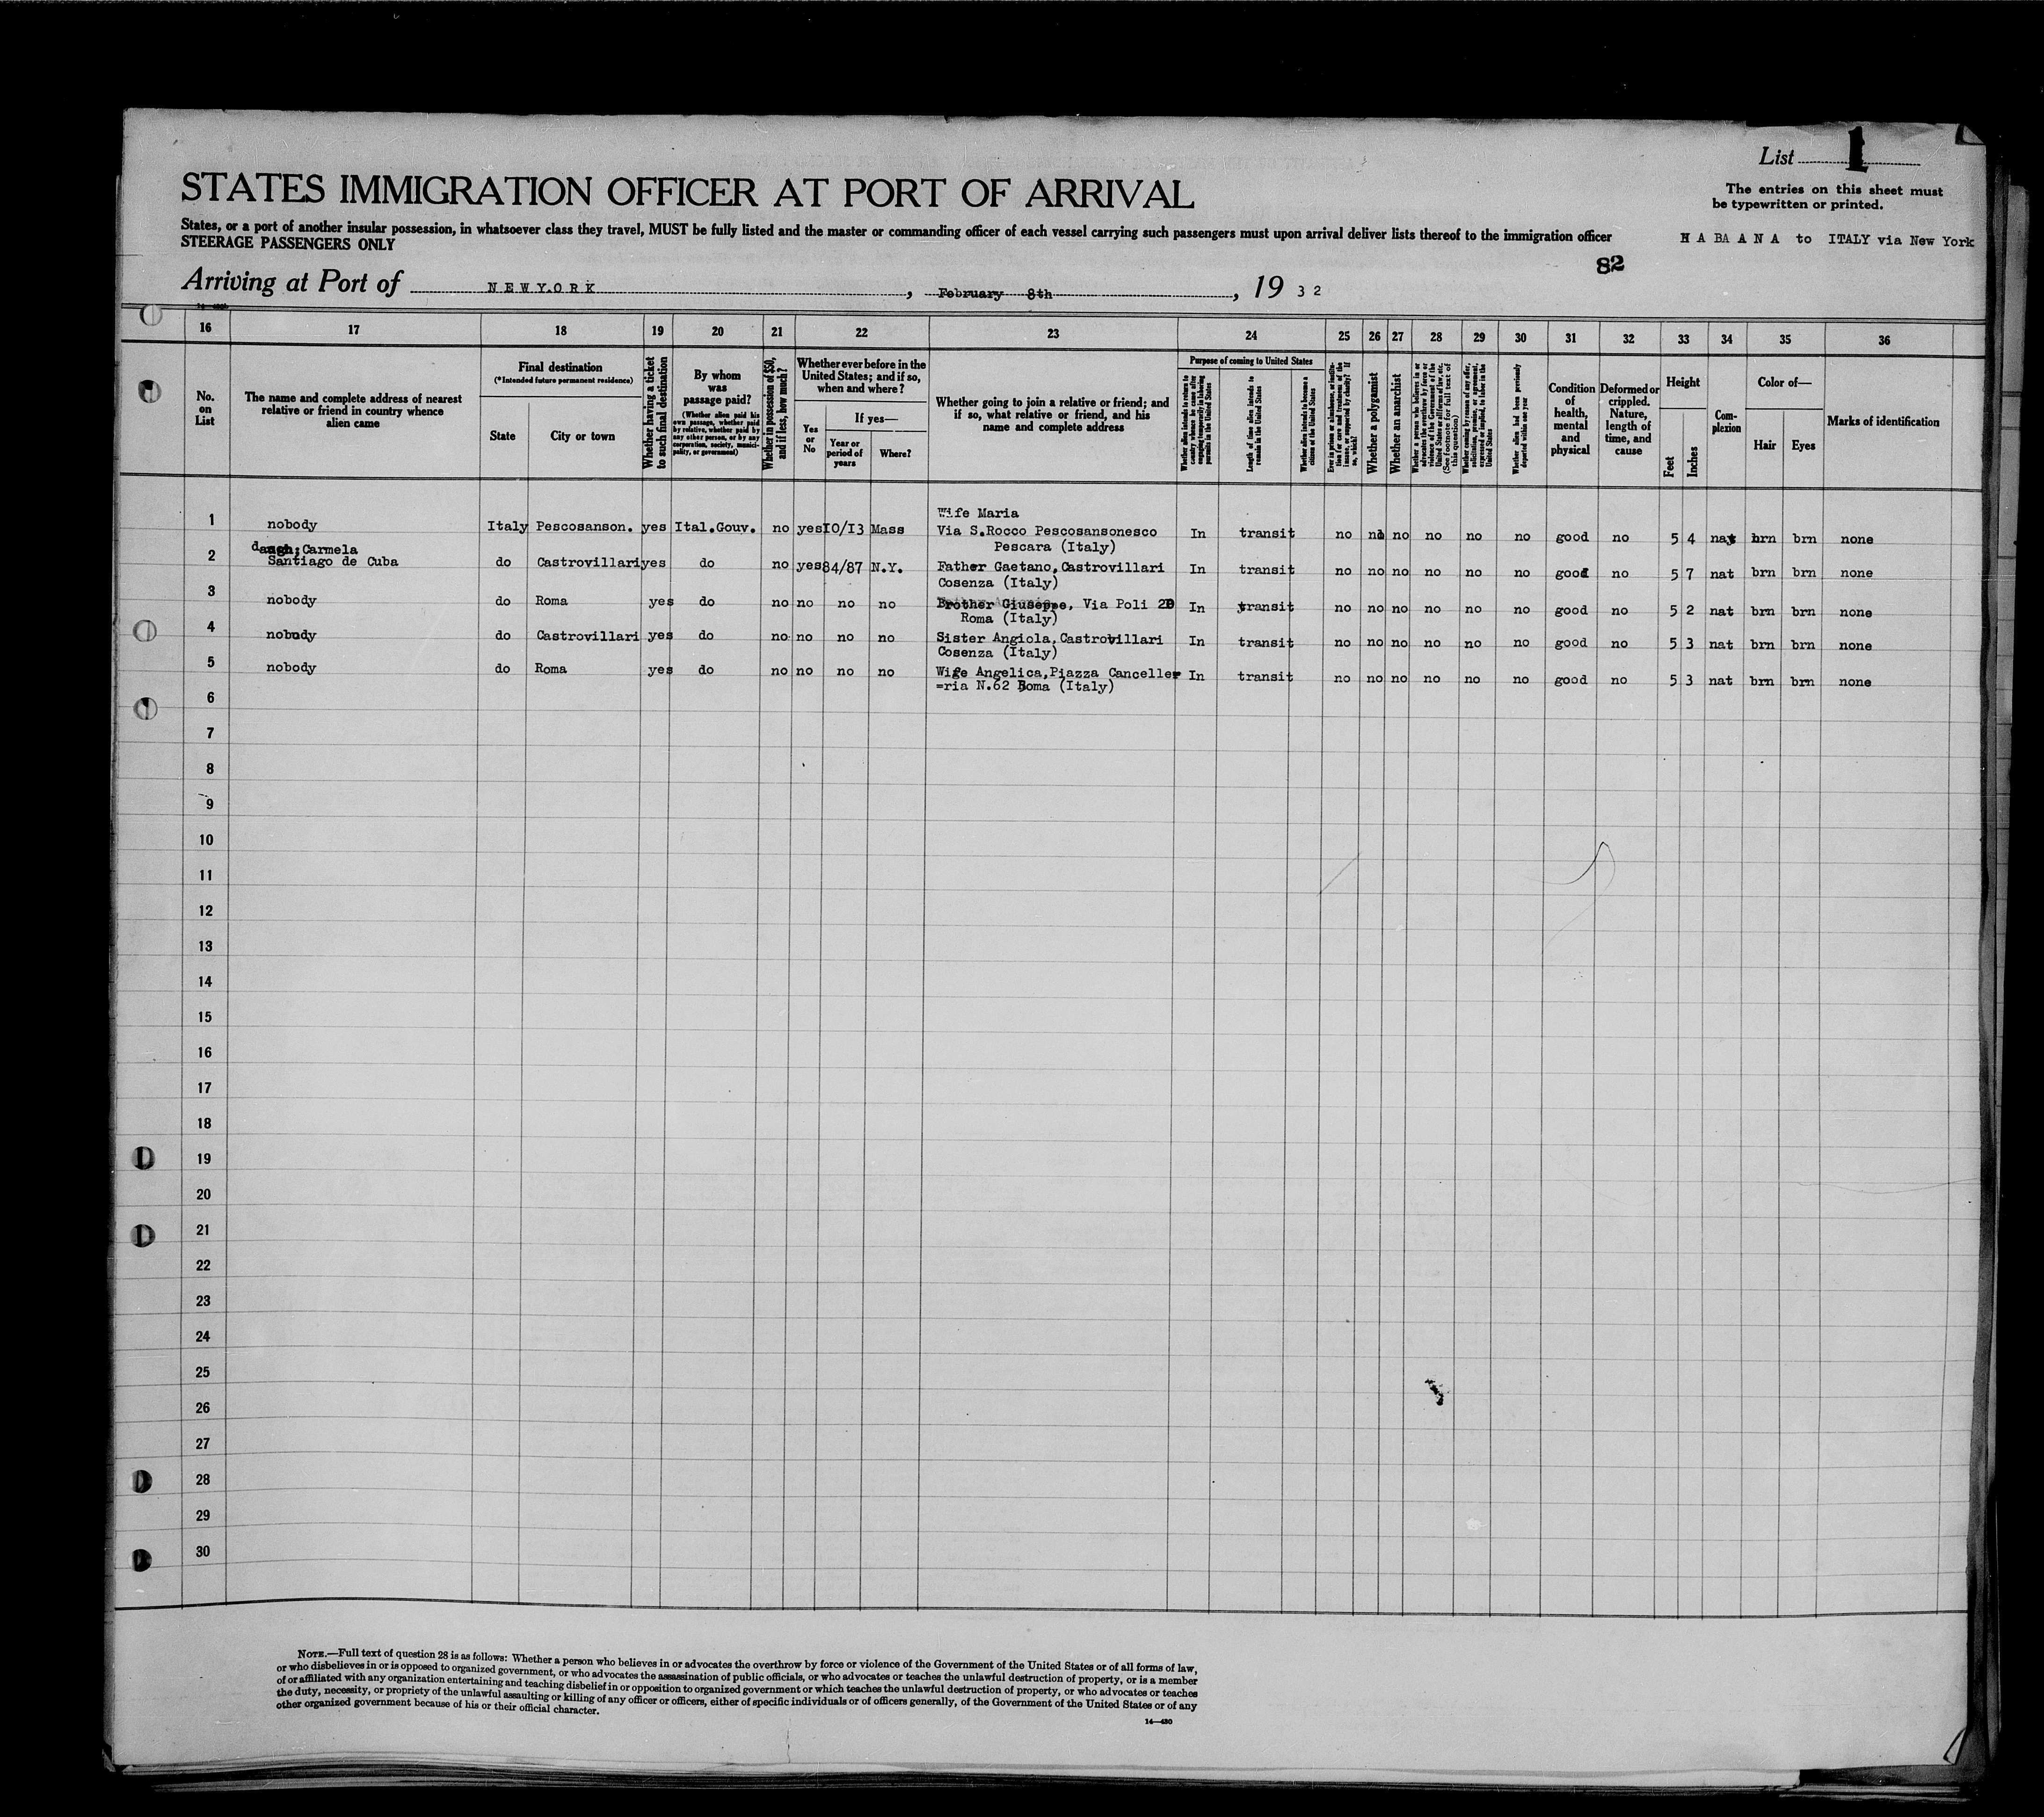 List 1
STATES IMMIGRATION OFFICER AT PORT OF ARRIVAL
The entries on this sheet must
be typewritten or printed.
States, or a port of another insular possession, in whatsoever class they travel, MUST be fully listed and the master or commanding officer of each vessel carrying such passengers must upon arrival deliver lists thereof to the immigration officer
STEERAGE PASSENGERS ONLY
H A BA A N A to ITALY via New York
82
Arriving at Port of NEWYORK, February 8th, 19 32
16 17 18 19 20 21 22 23 24 25 26 27 28 29 30 31 32 33 34 35 36
No.
on
List
The name and complete address of nearest
relative or friend in country whence
alien came
Final destination
(*Intended future permanent residence)
State
City or town
Whether having a ticket
to such final destination
By whom
was
passage paid?
(Whether alien paid his
own passage, whether paid
by relative, whether paid by
any other person, or by any
corporation, society, munici-
pality, or government)
Whether in possession of $50,
and if less, how much?
Whether ever before in the
United States; and if so,
when and where?
Yes
or
No
If yes—
Year or
period of
years
Where?
Whether going to join a relative or friend; and
if so, what relative or friend, and his
name and complete address
Purpose of coming to United States
Whether alien intends to return to
country whence he came after
engaging temporarily in laboring
pursuits in the United States
Length of time alien intends to
remain in the United States
Whether alien intends to become a
citizen of the United States
Ever in prison or almshouse, or institu-
tion for care and treatment of the
insane, or supported by charity? If
so, which?
Whether a polygamist
Whether an anarchist
Whether a person who believes in or
advocates the overthrow by force or
violence of the Government of the
United States or all forms of law, etc.
(See footnote for full text of
this question)
Whether coming by reason of any offer,
solicitation, promise, or agreement,
expressed or implied, to labor in the
United States
Whether alien had been previously
deported within one year
Condition
of
health,
mental
and
physical
Deformed or
crippled.
Nature,
length of
time, and
cause
Height
Feet
Inches
Com-
plexion
Color of—
Hair
Eyes
Marks of identification
Wife Maria
1 nobody Italy Pescosanson. yes Ital.Gouv. no yes 10/13 Mass Via S.Rocco Pescosansonesco In transit no no no no no no good no 5 4 nat brn brn none
Pescara (Italy)
daugh; Carmela
2 Santiago de Cuba do Castrovillari yes do no yes 84/87 N.Y. Father Gaetano, Castrovillari In transit no no no no no no good no 5 7 nat brn brn none
Cosenza (Italy)
3 nobody do Roma yes do no no no no Brother Giuseppe, Via Poli 20 In transit no no no no no no good no 5 2 nat brn brn none
Roma (Italy)
4 nobody do Castrovillari yes do no no no no Sister Angiola, Castrovillari In transit no no no no no no good no 5 3 nat brn brn none
Cosenza (Italy)
5 nobody do Roma yes do no no no no Wige Angelica, Piazza Canceller In transit no no no no no no good no 5 3 nat brn brn none
=ria N.62 Roma (Italy)
6
7
8
9
10
11
12
13
14
15
16
17
18
19
20
21
22
23
24
25
26
27
28
29
30
NOTE.—Full text of question 28 is as follows: Whether a person who believes in or advocates the overthrow by force or violence of the Government of the United States or of all forms of law,
or who disbelieves in or is opposed to organized government, or who advocates the assassination of public officials, or who advocates or teaches the unlawful destruction of property, or is a member
of or affiliated with any organization entertaining and teaching disbelief in or opposition to organized government or which teaches the unlawful destruction of property, or who advocates or teaches
the duty, necessity, or propriety of the unlawful assaulting or killing of any officer or officers, either of specific individuals or of officers generally, of the Government of the United States or of any
other organized government because of his or their official character.
14—430